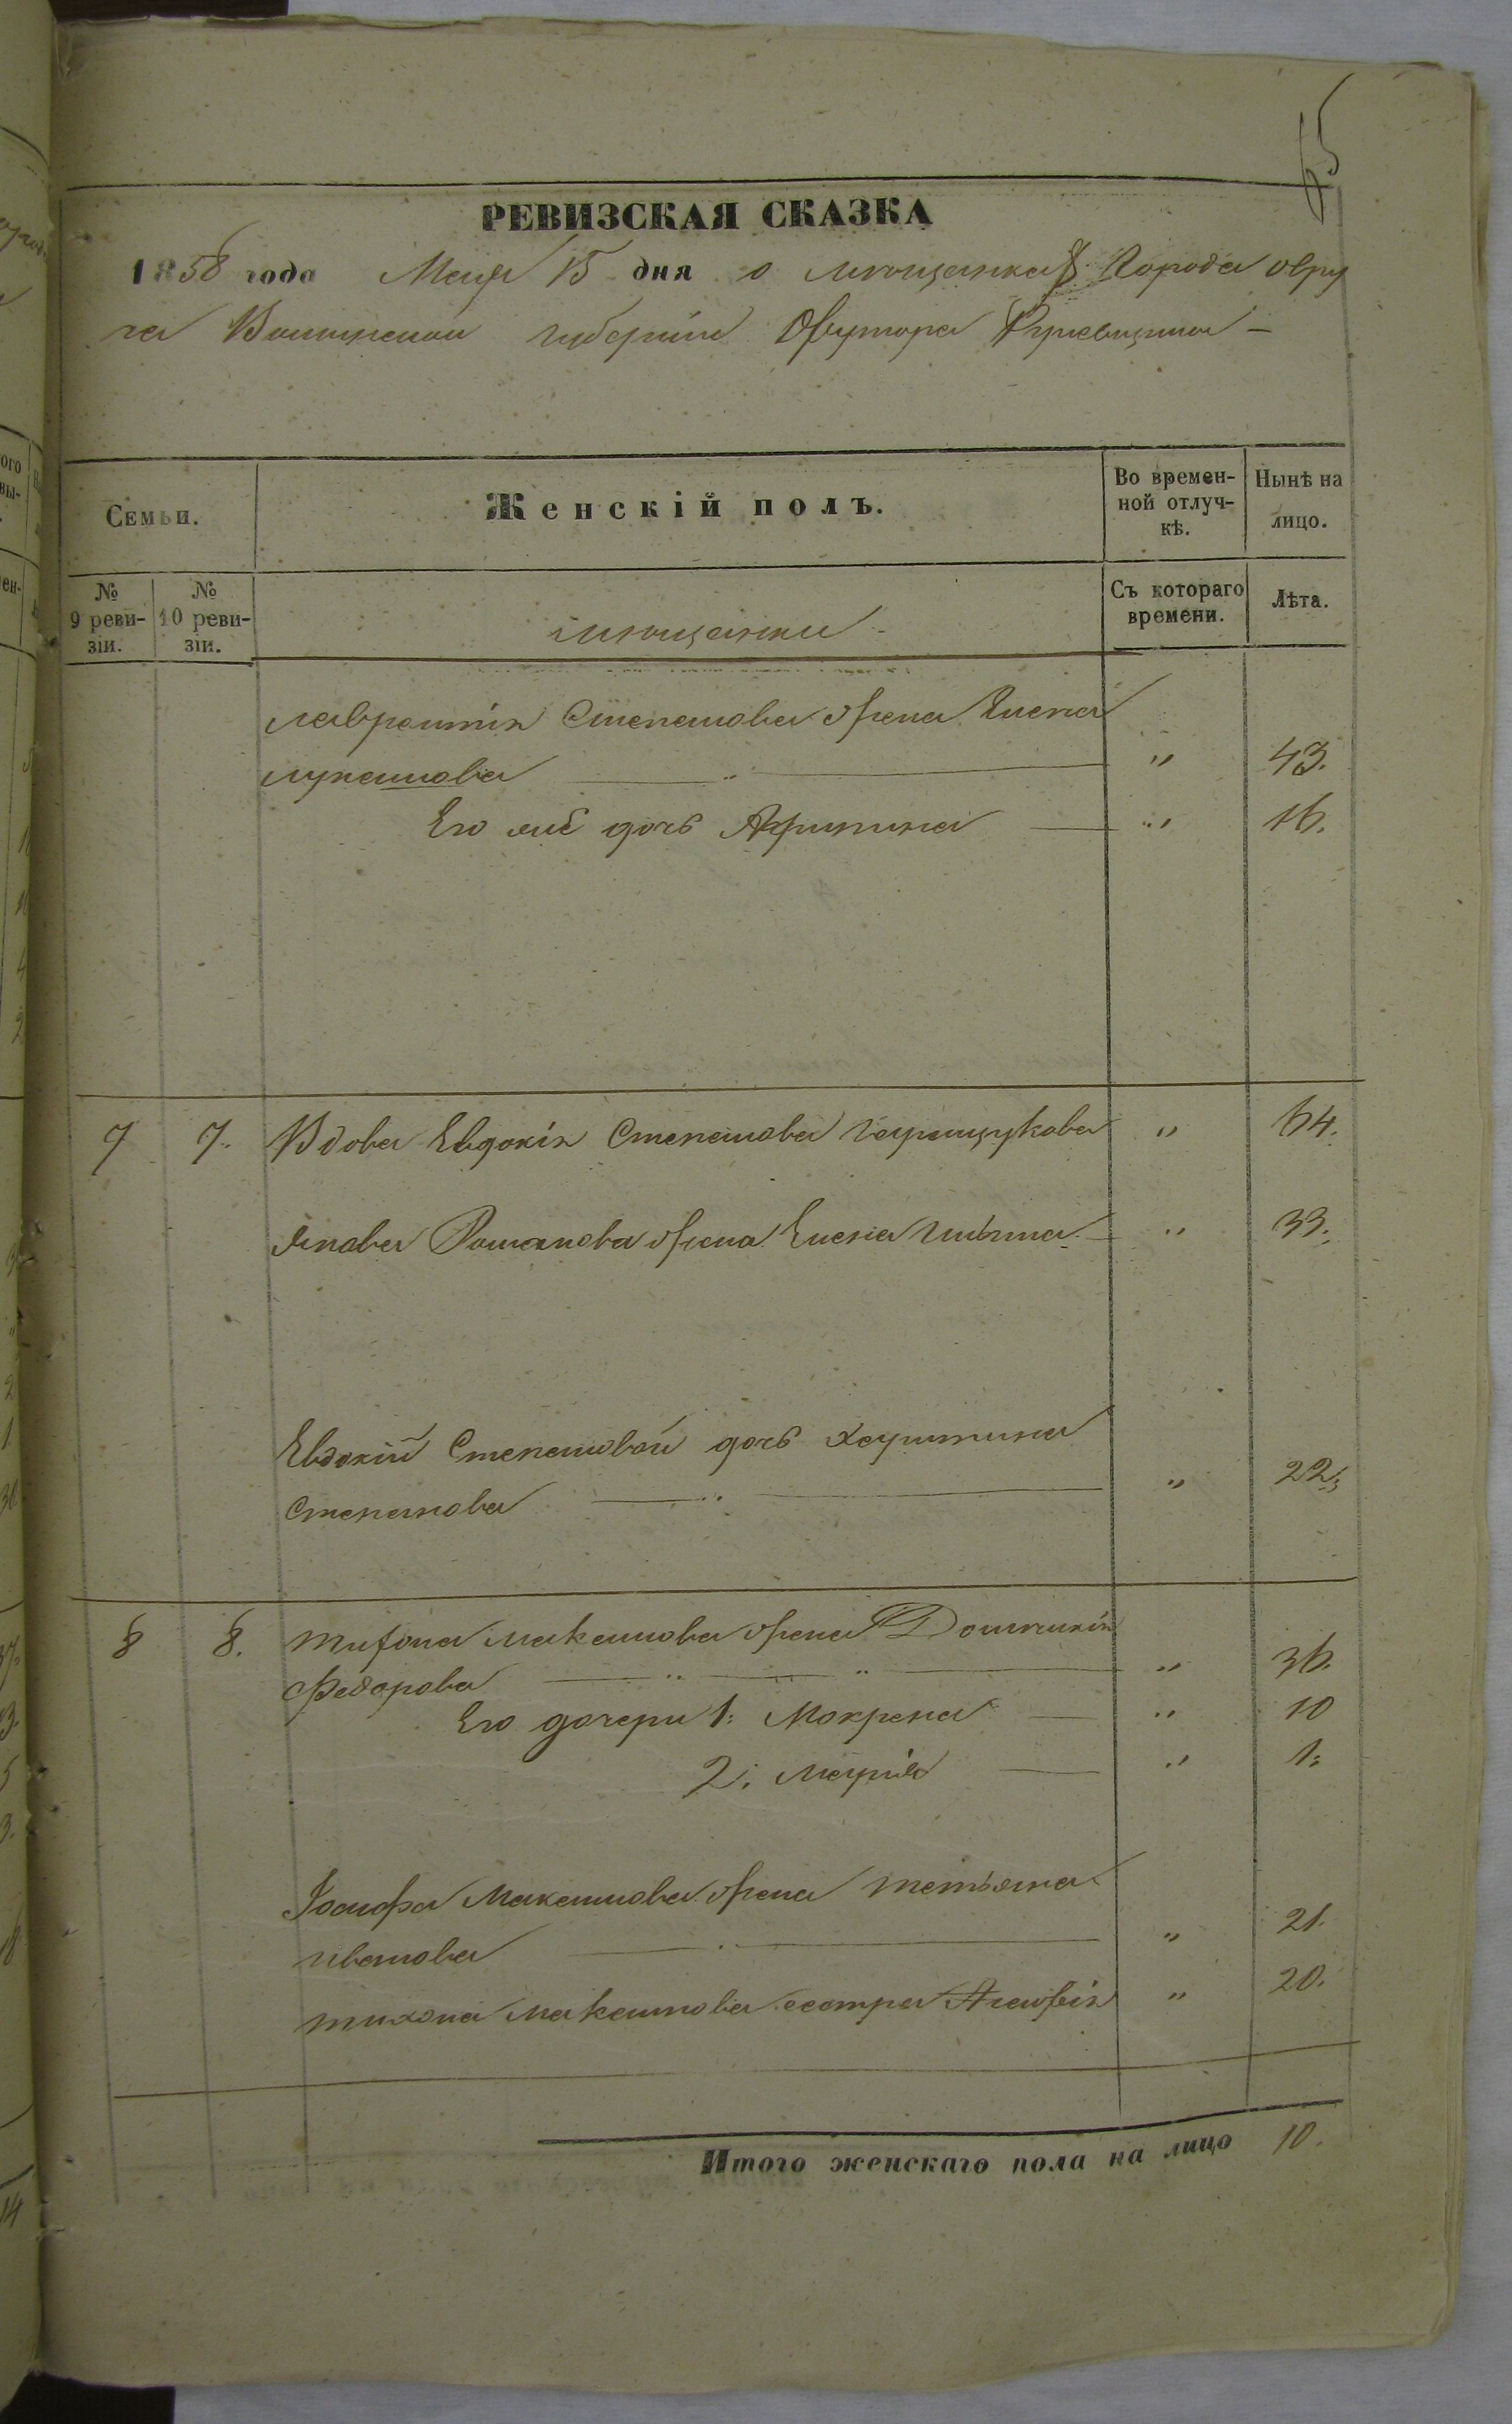 65
РЕВИЗСКАЯ СКАЗКА
1858 года Мая 15 дня о мѣщанкахъ Города Овру
ча Волынской губерніи
Семьи.
Женскій полъ.
Во времен-
ной отлуч-
кѣ.
Нынѣ на
лицо.
№
9 реви-
зіи.
№
10 реви-
зіи.
мѣщанки
Съ котораго
времени.
Лѣта.
Лаврентія Степанова жена Елена
Лукашова " 43.
Его же дочь Акрипина " 16.
7 7. Вдова Евдокія Степанова Гаращукова " 64.
Якова Романова жена Елена " 33.
Евдокіи Степановой дочь Харитина
Степанова " 22.
8 8. Тихона Макашова жена Домникія
Федорова " 36.
Его дочери 1: Мокрена " 10
2: Марія " 1:
Іосифа Макашова жена Тетьяна
Иванова " 21.
Тихона Макашова сестра Агафія " 20.
Итого женскаго пола на лицо 10.